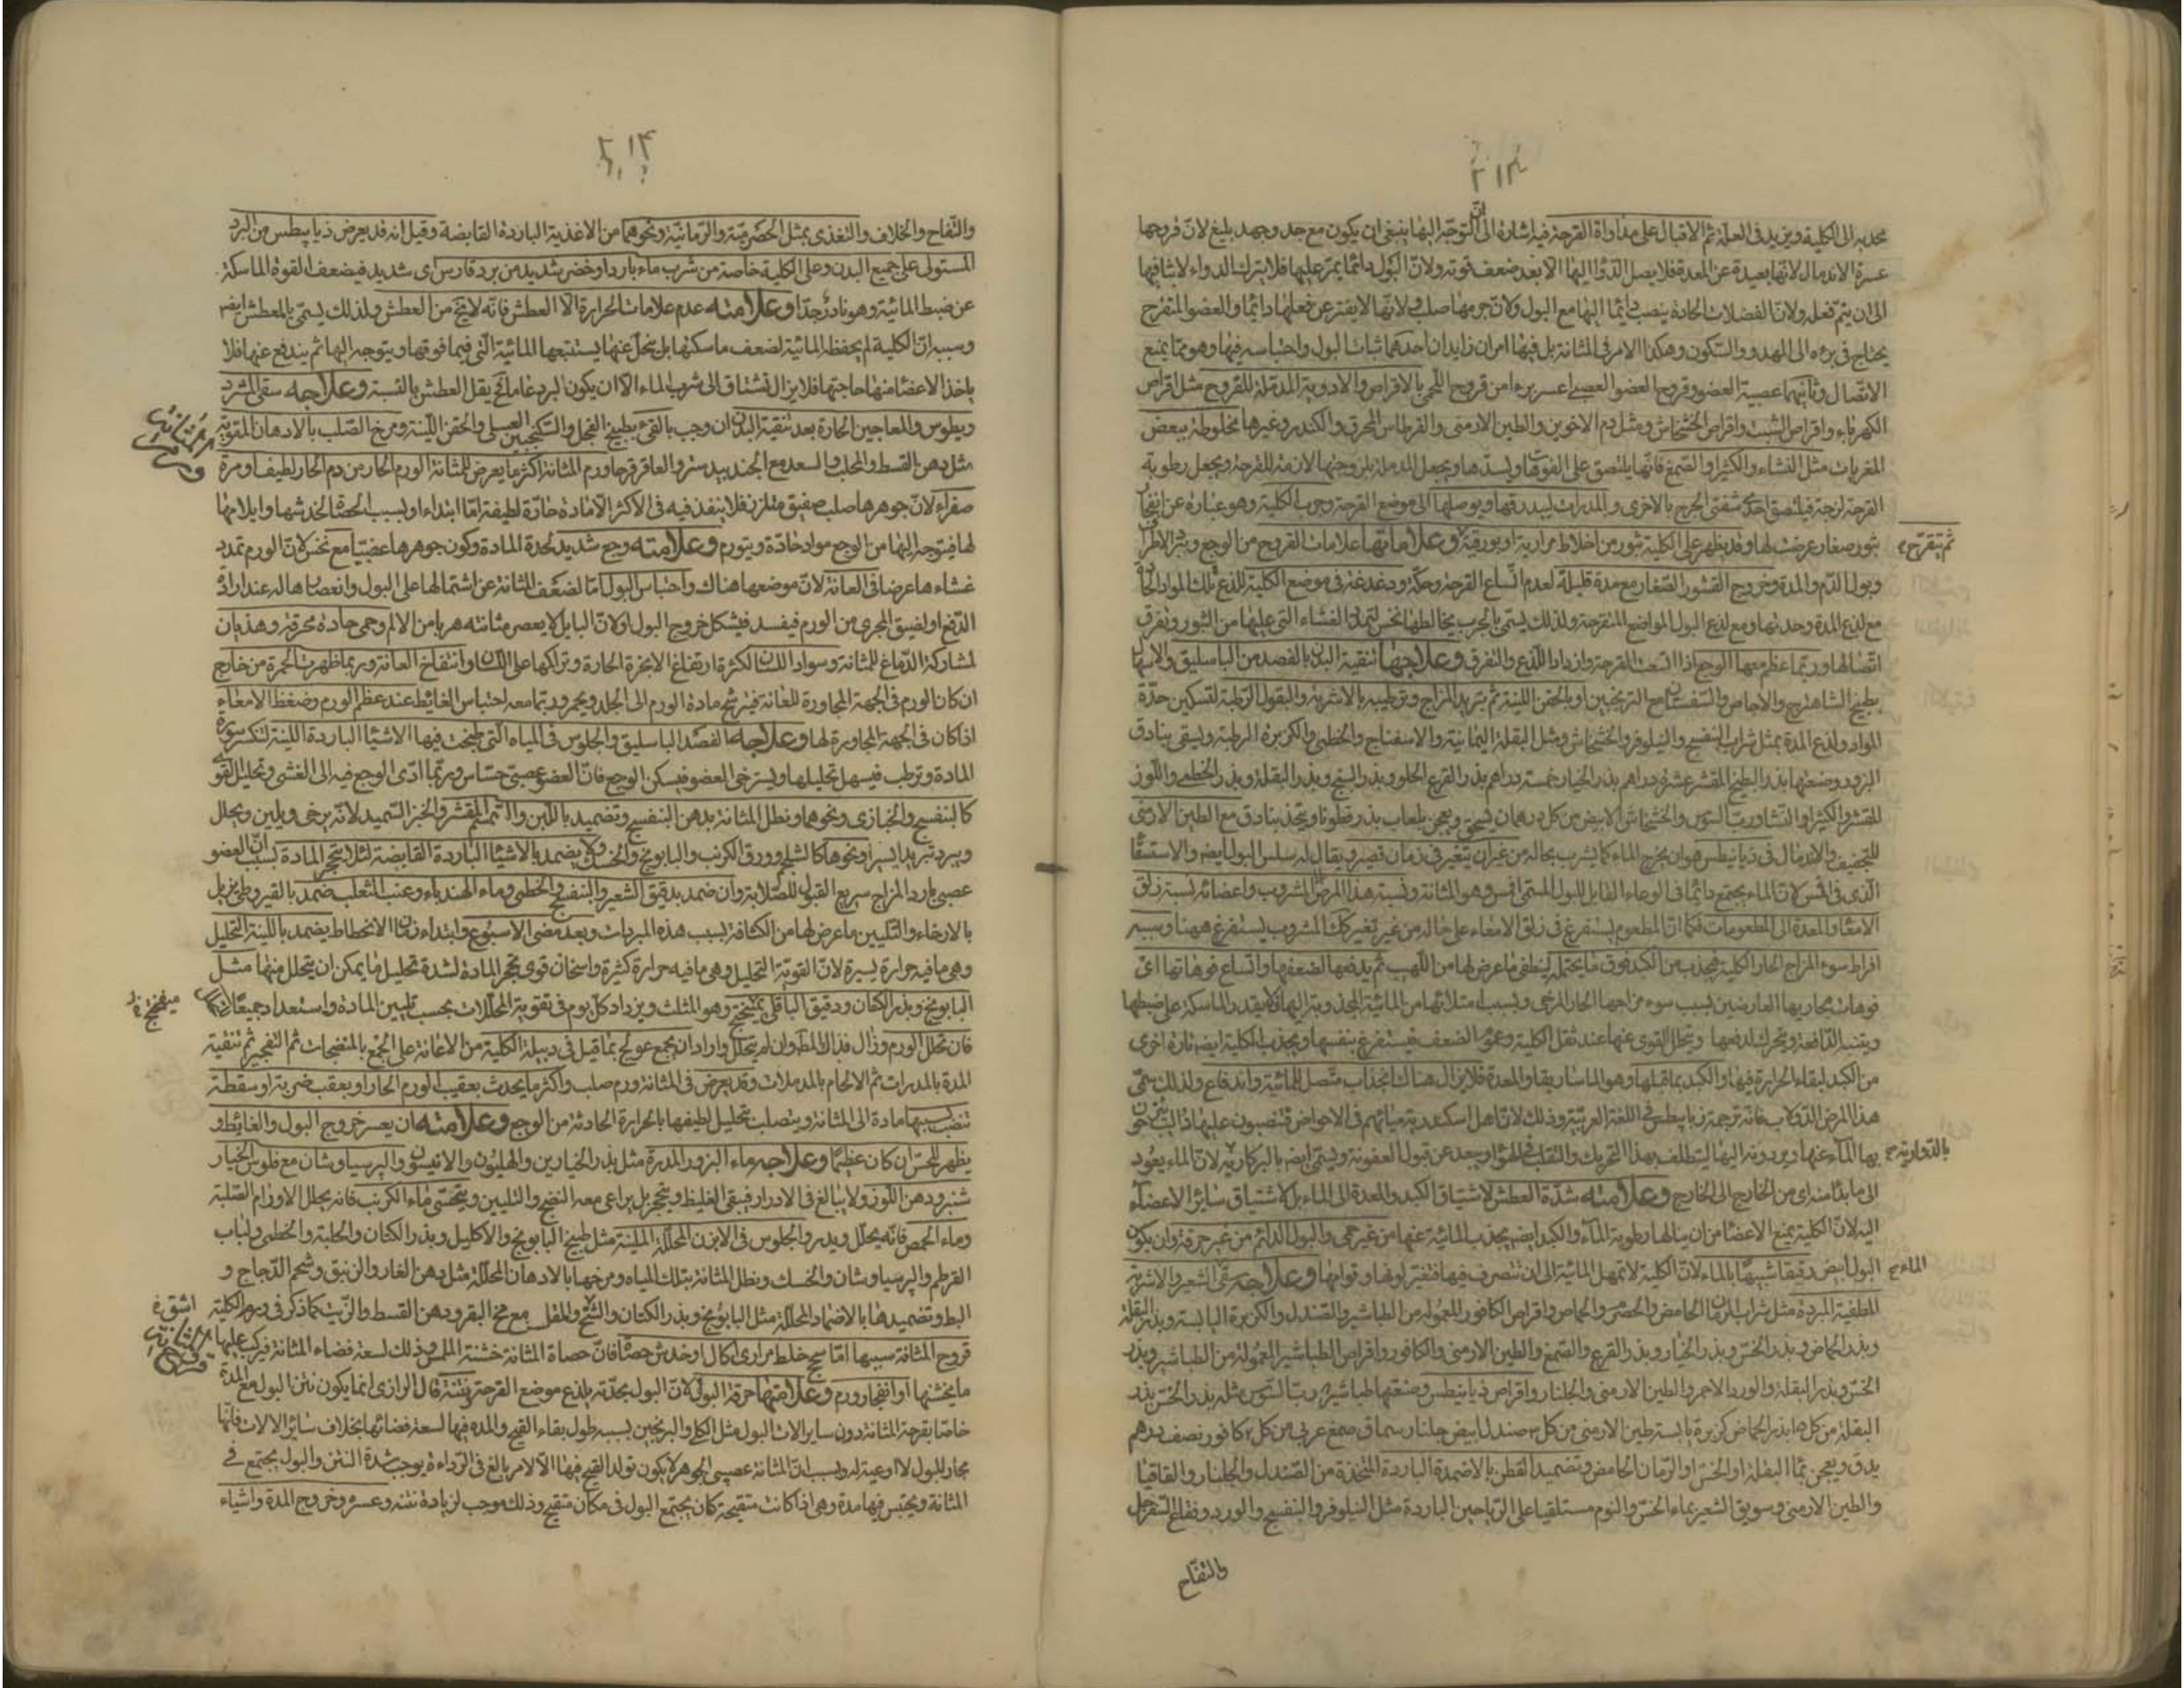 ٢١٣
محدبه الى الكلية ويزيد فى العلة ثم الاقبال على مداواة القرحة فيه اشارة الى ان التوجه اليها ينبغى ان يكون مع جد وجهد بليغ لان قروحها
عسرة الاندمال لانها بعيدة عن المعدة فلا يصل الدواء اليها الا بعد ضعف قوته ولان البول دائما يمر عليها فلا يترك الدواء لاشافيها
الى ان يتم فعله ولان الفضلات الحادة ينصب دائما اليها مع البول ولان جرمها صلب ولانها لا يفتر عن فعلها دائما والعضو المتقرح
يحتاج فى برءه الى الهدو والسكون وهكذا الامر فى المثانة بل فيها امران زايدان احدهما ثبات البول واحتباسه فيها وهو مما يمنع
الاتصال وثانيهما عصبية العضو وقروح العضو العصبى اعسر برءا من قروح اللحمى بالاقراص والادوية المدملة للقروح مثل اقراص
الكهرباء واقراص الشبث واقراص الخشخاش ومثل دم الاخوين والطين الارمنى والقرطاس المحرق والكندر وغيرها مخلوطة ببعض
المغريات مثل النشاء والكثيرا والصمغ فانها يلتصق على الفوهات ويسدها ويجعل المدملة بلزوجتها لازمة للقرحة ويجعل رطوبة
القرحة لزجة فيلتصق احد شفتى الجرح بالاخرى والمدرات ليبدرقها ويوصلها الى موضع القرحة وجرب الكلية وهو عبارة عن
بثور صغار عرضت لها وقد يظهر على الكلية بثور من اخلاط مرارية او بورقية وعلاماتها علامات القروح من الوجع
ثم يتقرح
وبول الدم والمدة وخروج القشور الصغار مع مدة قليلة لعدم اتساع القرحة وحكة ودغدغة فى موضع الكلية للذع تلك المواد
مع لذع المدة وحدتها ومع لذع البول المواضع المتقرحة ولذلك يسمى بالجرب يخالطها نخس لتمدد الغشاء التى عليها من البثور وتفرق
اتصالها وربما عظم معها الوجع اذا اتسعت القرحة وازداد اللذع والتفرق وعلاجها تنقية البدن بالفصد من الباسليق والاسهال
بطبيخ الشاهترج والاجاص والسفستان مع الترنجبين او بالحقن اللينة ثم تبريد المزاج وترطيبه بالاشربة والبقول الرطبة لتسكين حدة
المواد ولذع المدة بمثل شراب البنفسج والنيلوفر والخشخاش ومثل البقلة اليمانية والاسفناخ والخطمى والكزبرة الرطبة ويسقى بنادق
البزور وصنعتها بذر البطيخ المقشر عشرة دراهم بذر الخيار خمسة دراهم بذر القرع الحلو وبذر البنج وبذر البقلة وبذر الخطمى واللوز
المقشر والكثيرا والنشا ورب السوس والخشخاش الابيض من كل درهمان يسحق ويعجن بلعاب بذر قطونا ويتخذ بنادق مع الطين الارمنى
للتجفيف والاندمال فى ذيابيطس هو ان يخرج الماء كما يشرب بحاله من غير ان يتغير فى زمان قصير ويقال له سلس البول ايضا والاستسقاء
الذى فى لان الماء يجتمع دائما فى الوعاء القابل للبول وهو المثانة ونسبة هذا المرض الى المشروب واعضائه نسبة زلق
الامعاء والمعدة الى المطعومات فكما ان المطعوم يستفرغ فى زلق الامعاء على حاله من غير تغير كذلك المشروب يستفرغ ههنا وسببه
افراط سوء المزاج الحار الكلية فيجذب من الكبد فوق ما يحتمله ليطفى ما عرض لها من اللهب ثم يدفعها لضعفها واتساع فوهاتها اى
فوهات مجاريها العارضين بسبب سوء مزاجها الحار المرخى وبسبب امتلائها من المائية المجذوبة اليها فلا يقدر الماسكة على ضبطها
ويتنبه الدافعة ويتحرك لدفعها ويتحلل القوى عنها عند ثقل الكلية وعروض الضعف فيستفرغ بنفسها ويجذب الكلية ايضا تارة اخرى
من الكبد لبقاء الحرارة فيها والكبد مما قبلها وهو الماساريقا والمعدة فلا يزال هناك انجذاب متصل للمائية واندفاع ولذلك سمى
هذا المرض الدولاب فانه ترجمة ذيابيطس فى اللغة العربية وذلك لان اهل اسكندرية مياههم فى الاحواض فتصبون عليها
بها الماء عنها ويردونه اليها ليتلطف بهذا التحريك والتقلب فى الهواء ويبعد عن قبول العفونة ويسمى ايضا بالبركارية لان الماء يعود
بالدوارية
الى ما بدأ منه اى من الخارج الى الخارج وعلامته شدة العطش لاشتياق الكبد والمعدة الى الماء بل لاشتياق سائر الاعضاء
اليه لان الكلية يمنع الاعضاء من ان ينالها رطوبة الماء والكبد ايضا يجذب المائية عنها من غير حمى والبول الدائم من غير حرقة وان يكون
البول ابيض رقيقا شبيها بالماء لان الكلية لا تمهل المائية الى ان تتصرف فيها فتغير لونها وقوامها وعلاجه سقى الشعير والاشربة
الماء
المطفية المبردة مثل شراب الرمان الحامض والحصرم والحماض واقراص الكافور المعمولة من الطباشير والصندل والكزبرة اليابسة وبذر البقلة
وبذر الحماض وبذر الخس وبذر الخيار وبذر القرع والصمغ والطين الارمنى والكافور واقراص الطباشير المعمولة من الطباشير وبذر
الخس وبذر البقلة والورد الاحمر والطين الارمنى والجلنار واقراص ذيابيطس وصنعتها طباشير رب السوس مثله بذر الخس بذر
البقلة من كل ٥ بذر الحماض كزبرة يابسة طين الارمنى من كل ٣ صندل ابيض جلنار سماق صمغ عربى من كل ٢ كافور نصف درهم
يدق ويعجن بماء البقلة او الخس او الرمان الحامض وتضميد القطن بالاضمدة الباردة المتخذة من الصندل والجلنار والقاقيا
والطين الارمنى وسويق الشعير بماء الخس والنوم مستلقيا على الرياحين الباردة مثل النيلوفر والبنفسج والورد وفقاح السفرجل
والتفاح
٢١٤
والتفاح والخلاف والتغذى بمثل الحصرمية والرمانية ونحوهما من الاغذية الباردة القابضة وقيل انه قد يعرض ذيابيطس من البرد
المستولى على جميع البدن وعلى الكلية خاصة من شرب ماء بارد او خضر شديد من برد قارس اى شديد فيضعف القوة الماسكة
عن ضبط المائية وهو نادر جدا وعلامته عدم علامات الحرارة الا العطش فانه لا يخ من العطش ولذلك يسمى بالمعطش ايضا
وسببه ان الكلية لم يحفظ المائية لضعف ماسكتها بل يتحلل عنها يستتبعها المائية التى فيما فوقها ويتوجه اليها ثم يندفع عنها فلا
ياخذ الاعضاء منها حاجتها فلا يزال تشتاق الى شرب الماء الا ان يكون البرد غامرا فح يقل العطش بالنسبة وعلاجه سقى المثرو
ديطوس والمعاجين الحارة بعد تنقية البدن ان وجب بالقئ بطبيخ الفجل والسكنجبين العسلى والحقن اللينة ومرخ الصلب بالادهان المقوية
مثل دهن القسط والمحلب والسعد مع الجندبيدستر والعاقرقرحا ورم المثانة اكثر ما يعرض للمثانة الورم الحار من دم الحار لطيف او مرة
امراض المثانة
ورم
صفراء لان جوهرها صلب صفيق متلزز فلا ينفذ فيه فى الاكثر الا مادة حادة لطيفة اما ابتداء او بسبب الحصاة لخدشها وايلامها
لها فيتوجه اليها من الوجع مواد حادة ويتورم وعلامته وجع شديد لحدة المادة وكون جوهرها عصبيا مع نخس لان الورم تمدد
غشاءها عرضا فى العانة لان موضعها هناك واحتباس البول اما لضعف المثانة عن اشتمالها على البول وانعصارها له عند ارادة
الدفع او لضيق المجرى من الورم فيفسد فيشكل خروج البول او لان البايل لا يعصر مثانته هربا من الالم وحمى حادة محرقة وهذيان
لمشاركة الدماغ للمثانة وسواد اللسان لكثرة ارتفاع الابخرة الحارة وتراكمها على اللسان وانتفاخ العانة وربما ظهرت الحمرة من خارج
ان كان الورم فى الجهة المجاورة للعانة فيترشح مادة الورم الى الجلد ويحمر وربما معه احتباس الغائط عند عظم الورم وضغط الامعاء
اذا كان فى الجهة المجاورة لها وعلاجه الفصد الباسليق والجلوس فى المياه التى طبخت فيها الاشياء الباردة اللينة لتكسر سورة
المادة وترطب فيسهل تحليلها ويسترخى العضو فيسكن الوجع فان العضو عصبى حساس وربما ادى الوجع فيه الى الغشى وتحليل القوى
كالبنفسج والخبازى ونحوهما ونطل المثانة بدهن البنفسج وتضميد باللبن والسمسم المقشر والخبز السميد لانه يرخى ويلين ويحلل
ويبرد تبريدا يسيرا ونحوها كالشلجم وورق الكرنب والبابونج والخسك ولا يضمد بالاشياء الباردة القابضة لئلا يتحجر المادة بسبب ان العضو
عصبى بارد المزاج سريع القبول للصلابة وان ضمد بدقيق الشعير والبنفسج والخطمى وماء الهندباء وعنب الثعلب ضمد بالقيروطى يزيل
بالارخاء والتليين ما عرض لها من الكثافة بسبب هذه المبردات وبعد مضى الاسبوع وابتداء زمان الانحطاط يضمد باللينة التحليل
وهى ما فيه حرارة يسيرة لان القوية التحليل وهى ما فيه حرارة كثيرة واسخان قوى يحجر المادة لشدة تحليل ما يمكن ان يتحلل منها مثل
البابونج وبذر الكتان ودقيق الباقلى بميبختج وهو المثلث ويزداد كل يوم فى تقوية المحللات بحسب تليين المادة واستعدادها
ميفختج
فان تحلل الورم وزال فذاك المطلوب وان لم يتحلل واراد ان يجمع عولج بما قيل فى دبيلة الكلية من الاعانة على الجمع بالمنضجات ثم التفجير ثم تنقية
المدة بالمدرات ثم الالحام بالمدملات وقد يعرض فى المثانة ورم صلب واكثر ما يحدث بعقيب الورم الحار او بعقب ضربة او سقطة
تنصب بسببها مادة الى المثانة ويتصلب بتحليل لطيفها بالحرارة الحادثة من الوجع وعلامته ان يعسر خروج البول والغائط و
يظهر للحس ان كان عظيما وعلاجه ماء البزور المدرة مثل بذر الخيارين والهليون والانيسون والبرسياوشان مع فلوس الخيار
شنبر ودهن اللوز ولا يبالغ فى الادرار فيبقى الغليظ ويتحجر بل يراعى معه النضج والتليين ويتحسى ماء الكرنب فانه يحلل الاورام الصلبة
وماء الحمص فانه يحلل ويدر والجلوس فى الابزن المحللة الملينة مثل طبيخ البابونج والاكليل وبذر الكتان والحلبة والخطمى ولباب
القرطم والبرسياوشان والخسك ونطل المثانة بتلك المياه ومرخها بالادهان المحللة مثل دهن الغار والزنبق وشحم الدجاج و
البط وتضميدها بالاضماد المحللة مثل البابونج وبذر الكتان والشبث والمقل مع مخ البقر ودهن القسط والزيت كما ذكر فى ورم الكلية
اشق
قروح المثانة سببها اما سحج خلط مرارى اكال او خدش حصاة فان حصاة المثانة خشنة الملمس وذلك لسعة فضاء المثانة فيركب عليها
قروح المثانة
ما يخشنها او انفجار ورم وعلامتها حرقة البول لان البول بحدته يلذع موضع القرحة ونتنه قال الرازى انما يكون نتن البول مع المدة
خاصا بقرحة المثانة دون ساير الات البول مثل الكلى والبربخين بسبب طول بقاء القيح والمدة فيها لسعة فضائها بخلاف سائر الالات فانها
مجار للبول لا اوعية له وبسبب ان المثانة عصبى الجوهر لا يكون تولد القيح فيها الا لامر بالغ فى الرداءة يوجب شدة النتن والبول يجتمع فى
المثانة ويحتبس فيها مدة وهى اذا كانت متقيحة كان يجتمع البول فى مكان متقيح وذلك موجب لزيادة نتنه وعسره وخروج المدة واشياء